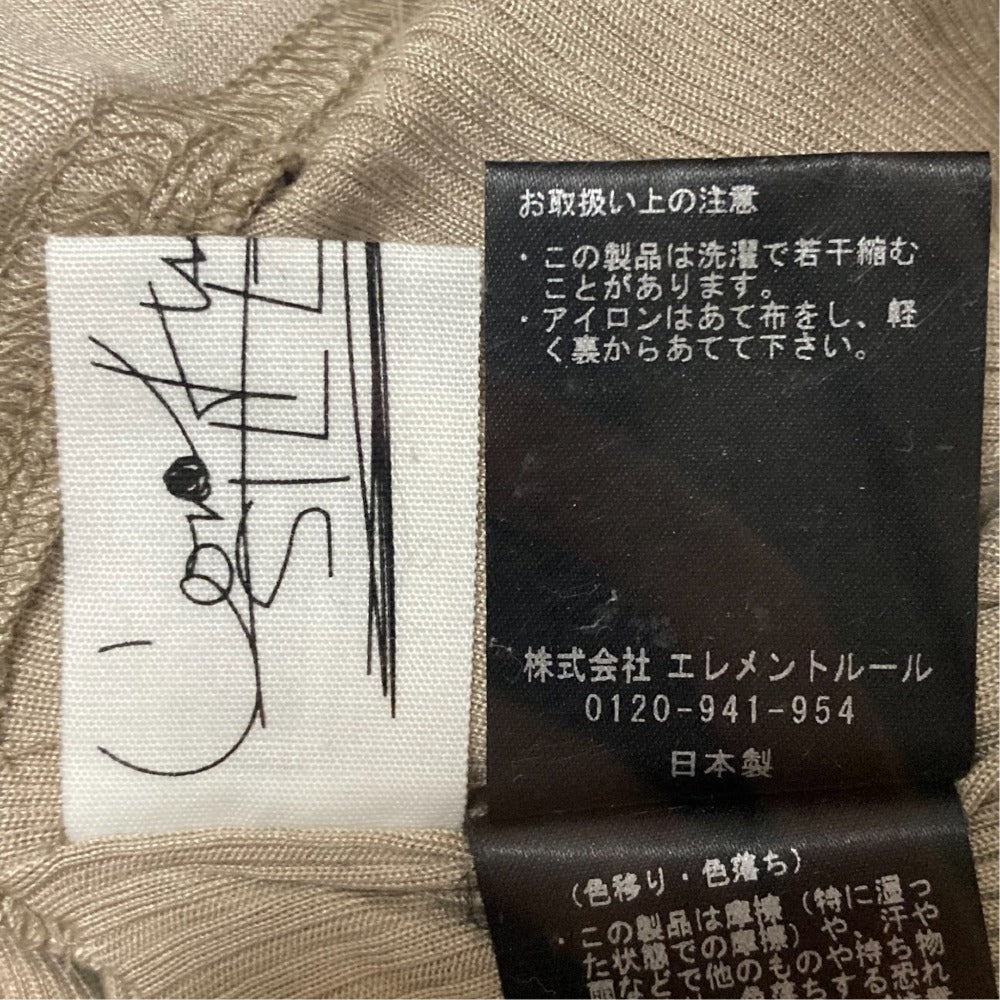 お取扱い上の注意
・この製品は洗濯で若干縮む
ことがあります。
・アイロンはあて布をし、軽
く裏からあてて下さい。
株式会社 エレメントルール
0120-941-954
日本製
(色移り・色落ち)
・この製品は摩擦(特に湿っ
た状態での摩擦)や、汗や
雨などで他のものや持ち物
色落ちする恐れ
STEE